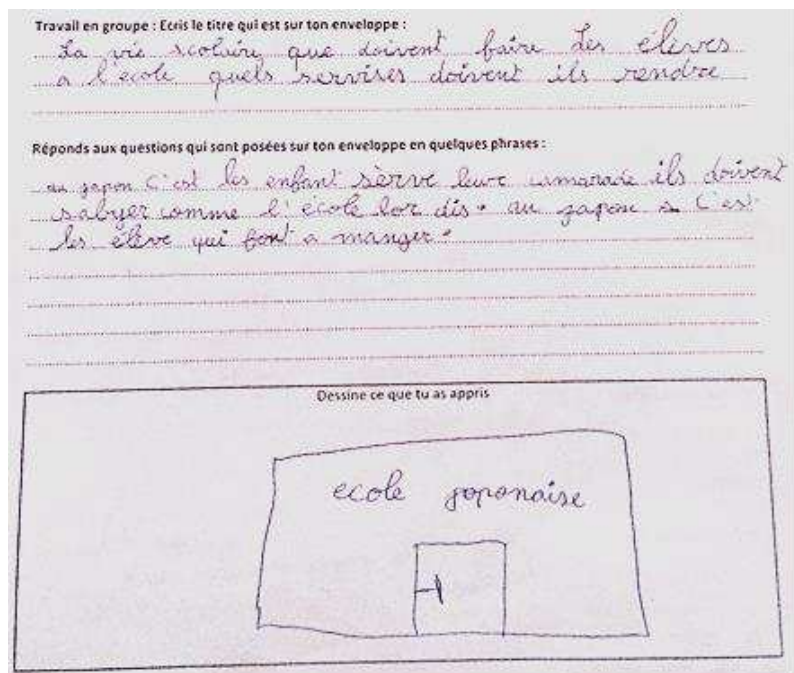 Travail en groupe : Ecris le titre qui est sur ton enveloppe :
La vie scolaire que doivent faire les élèves
a l'ecole quels servises doivent ils rendre
Réponds aux questions qui sont posées sur ton enveloppe en quelques phrases :
au japon c'est les enfant serve leur camarade ils doivent
sabyer comme l'école lor dis. au japon c'est
les élève qui font a manger.
Dessine ce que tu as appris
ecole japonaise